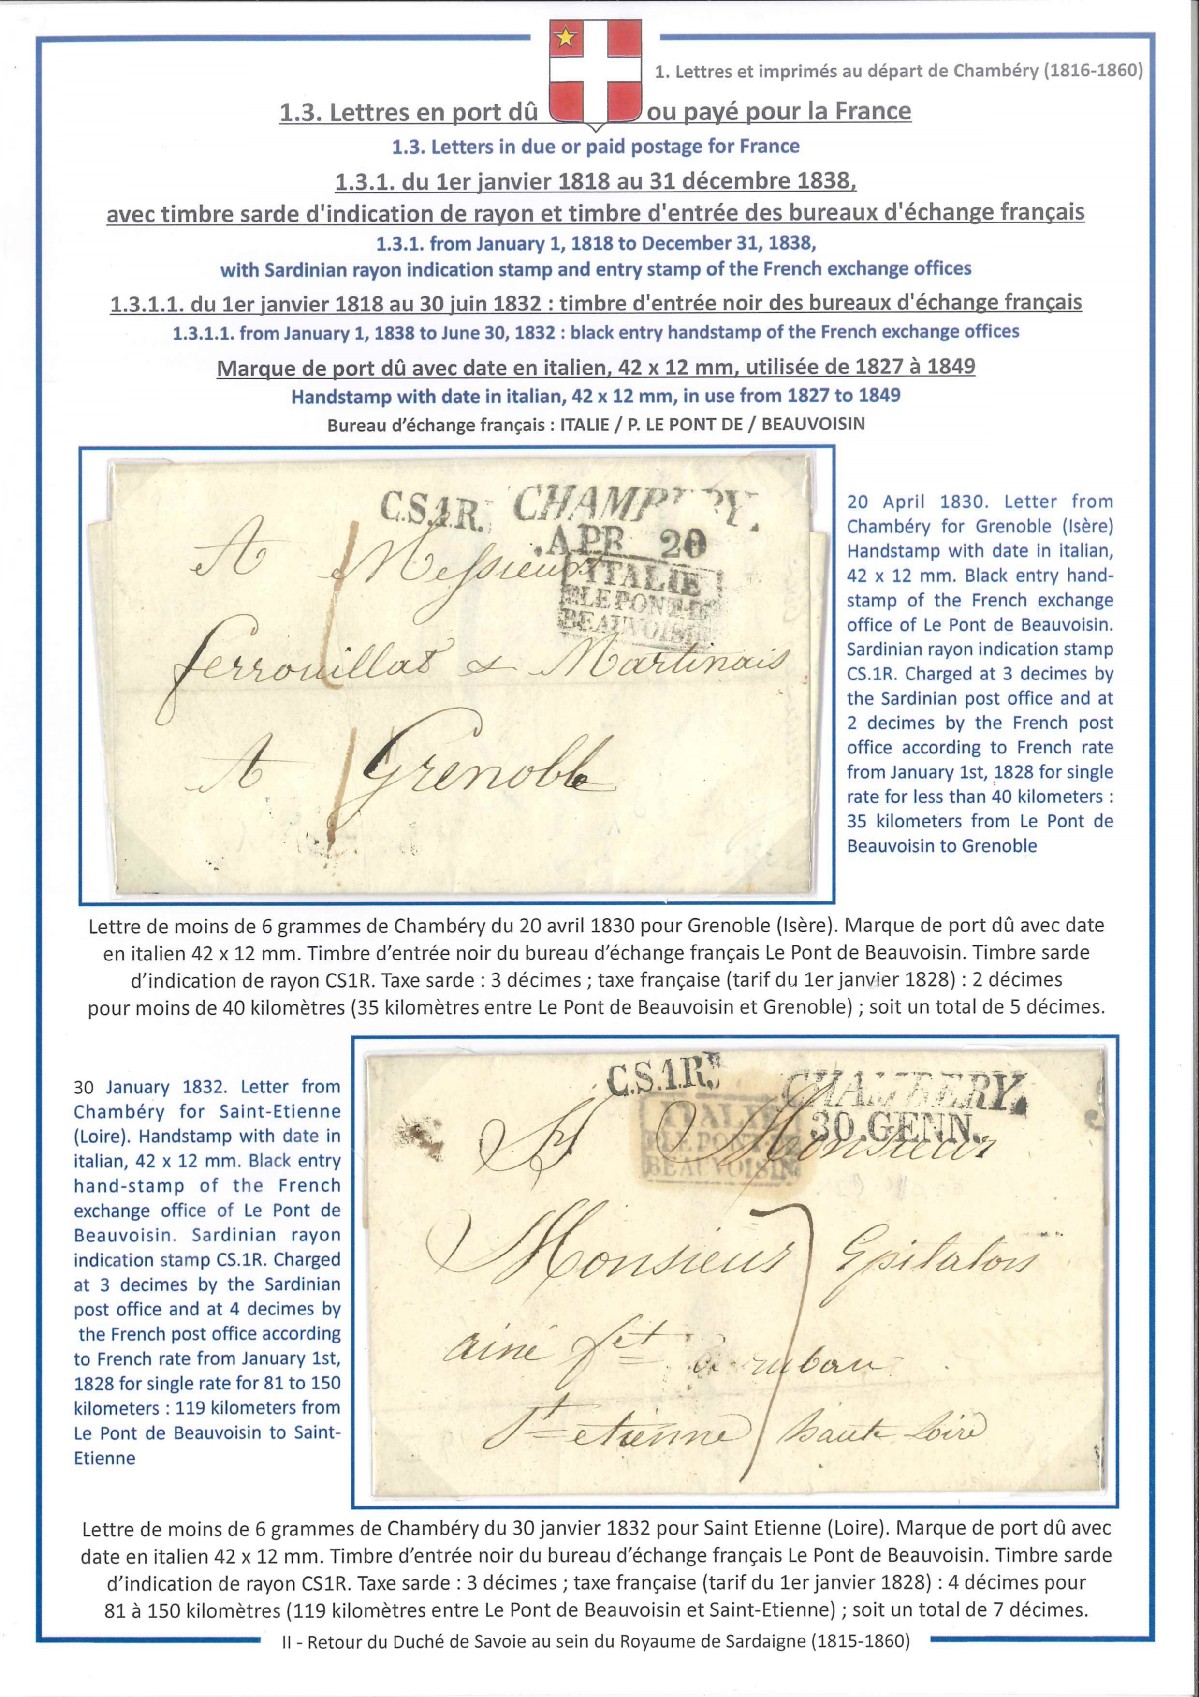 1. Lettres et imprimés au départ de Chambéry (1816-1860)
1.3. Lettres en port dû ou payé pour la France
1.3. Letters in due or paid postage for France
1.3.1. du 1er janvier 1818 au 31 décembre 1838,
avec timbre sarde d'indication de rayon et timbre d'entrée des bureaux d'échange français
1.3.1. from January 1, 1818 to December 31, 1838,
with Sardinian rayon indication stamp and entry stamp of the French exchange offices
1.3.1.1. du 1er janvier 1818 au 30 juin 1832 : timbre d'entrée noir des bureaux d'échange français
1.3.1.1. from January 1, 1838 to June 30, 1832 : black entry handstamp of the French exchange offices
Marque de port dû avec date en italien, 42 x 12 mm, utilisée de 1827 à 1849
Handstamp with date in italian, 42 x 12 mm, in use from 1827 to 1849
Bureau d'échange français : ITALIE / P. LE PONT DE / BEAUVOISIN
C.S.1.R. CHAMBERY.
APR 20
ITALIE
P. LE PONT-DE
BEAUVOISIN
A Messieurs
ferrouillat & Martinais
A Grenoble
20 April 1830. Letter from
Chambéry for Grenoble (Isère)
Handstamp with date in italian,
42 x 12 mm. Black entry hand-
stamp of the French exchange
office of Le Pont de Beauvoisin.
Sardinian rayon indication stamp
CS.1R. Charged at 3 decimes by
the Sardinian post office and at
2 decimes by the French post
office according to French rate
from January 1st, 1828 for single
rate for less than 40 kilometers :
35 kilometers from Le Pont de
Beauvoisin to Grenoble
Lettre de moins de 6 grammes de Chambéry du 20 avril 1830 pour Grenoble (Isère). Marque de port dû avec date
en italien 42 x 12 mm. Timbre d'entrée noir du bureau d'échange français Le Pont de Beauvoisin. Timbre sarde
d'indication de rayon CS1R. Taxe sarde : 3 décimes ; taxe française (tarif du 1er janvier 1828) : 2 décimes
pour moins de 40 kilomètres (35 kilomètres entre Le Pont de Beauvoisin et Grenoble) ; soit un total de 5 décimes.
30 January 1832. Letter from
Chambéry for Saint-Etienne
(Loire). Handstamp with date in
italian, 42 x 12 mm. Black entry
hand-stamp of the French
exchange office of Le Pont de
Beauvoisin. Sardinian rayon
indication stamp CS.1R. Charged
at 3 decimes by the Sardinian
post office and at 4 decimes by
the French post office according
to French rate from January 1st,
1828 for single rate for 81 to 150
kilometers : 119 kilometers from
Le Pont de Beauvoisin to Saint-
Etienne
C.S.1.R. CHAMBERY.
30. GENN.
ITALIE
P. LE PONT-DE
BEAUVOISIN
A Monsieur
Monsieur Epitalon
ainé fct de ruban
St etienne haute Loire
7
Lettre de moins de 6 grammes de Chambéry du 30 janvier 1832 pour Saint Etienne (Loire). Marque de port dû avec
date en italien 42 x 12 mm. Timbre d'entrée noir du bureau d'échange français Le Pont de Beauvoisin. Timbre sarde
d'indication de rayon CS1R. Taxe sarde : 3 décimes ; taxe française (tarif du 1er janvier 1828) : 4 décimes pour
81 à 150 kilomètres (119 kilomètres entre Le Pont de Beauvoisin et Saint-Etienne) ; soit un total de 7 décimes.
II - Retour du Duché de Savoie au sein du Royaume de Sardaigne (1815-1860)